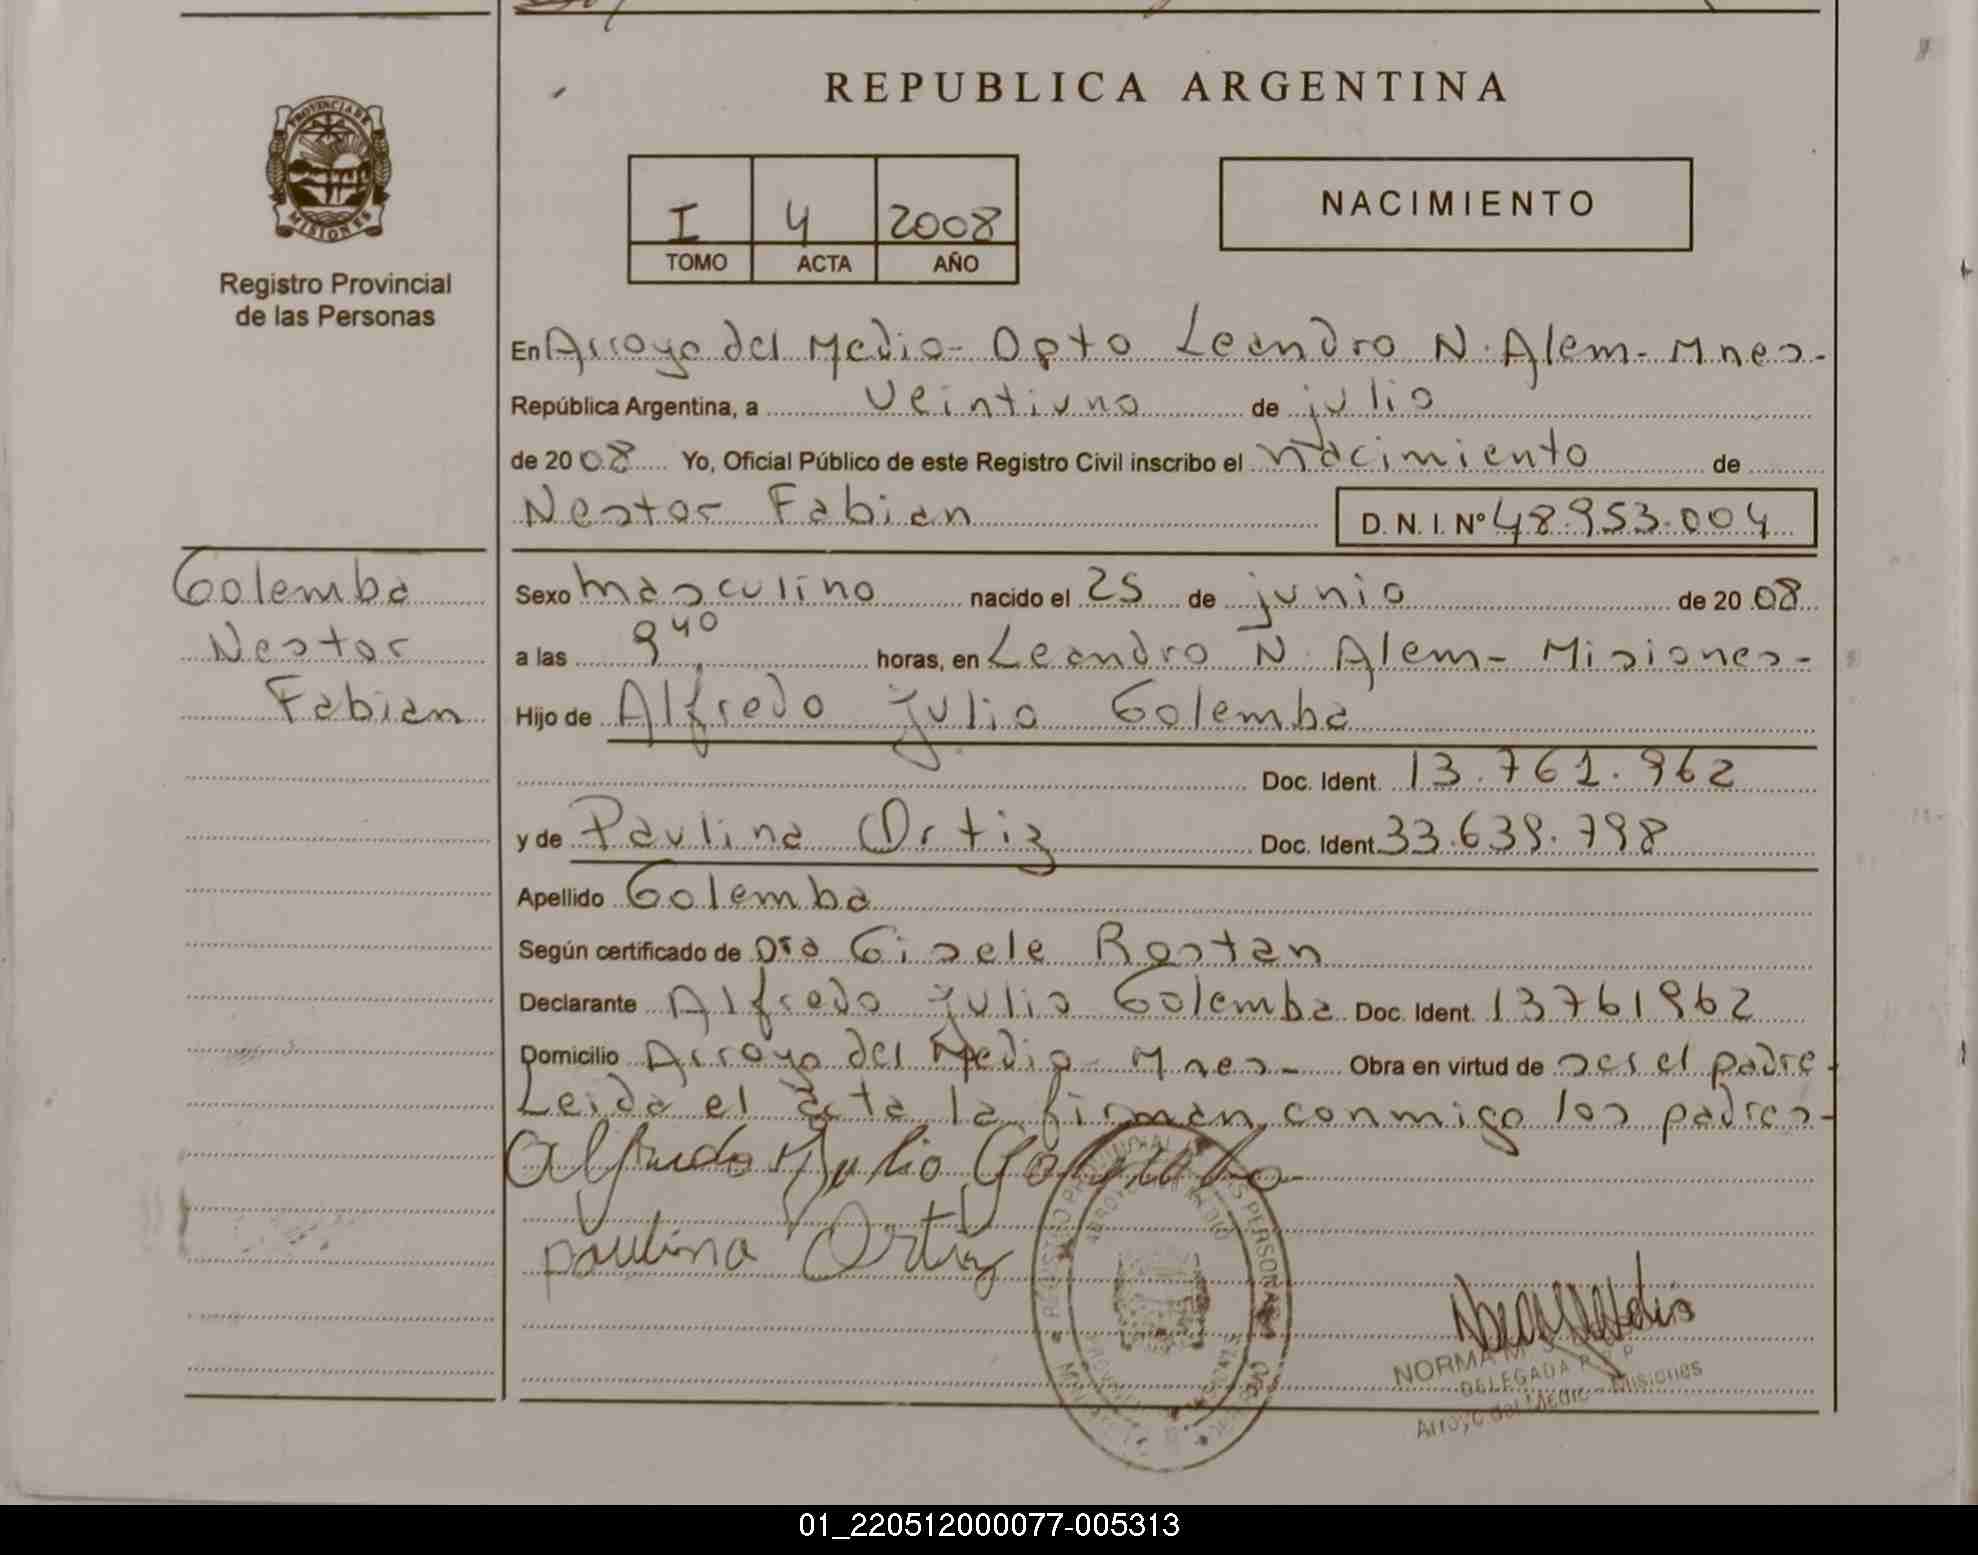 REPUBLICA ARGENTINA
PROVINCIA DE
MISIONES
Registro Provincial
de las Personas
I 4 2008
TOMO ACTA AÑO
NACIMIENTO
En Arroyo del Medio - Dpto Leandro N. Alem - Mnes -
República Argentina, a veintiuno de julio
de 2008 Yo, Oficial Público de este Registro Civil inscribo el nacimiento de
Nestor Fabian D. N. I. Nº 48.953.004
Golemba
Nestor
Fabian
Sexo masculino nacido el 25 de junio de 2008
a las 9 40 horas, en Leandro N. Alem - Misiones -
Hijo de Alfredo Julio Golemba
Doc. Ident. 13.761.962
y de Paulina Ortiz Doc. Ident. 33.639.798
Apellido Golemba
Según certificado de Dra Gisele Rostan
Declarante Alfredo Julio Golemba Doc. Ident. 13761962
Domicilio Arroyo del Medio - Mnes - Obra en virtud de ser el padre -
Leida el acta la firman conmigo los padres -
Alfredo Julio Golemba
Paulina Ortiz
NORMA M
DELEGADA R P P
Arroyo del Medio - Misiones
01_220512000077-005313